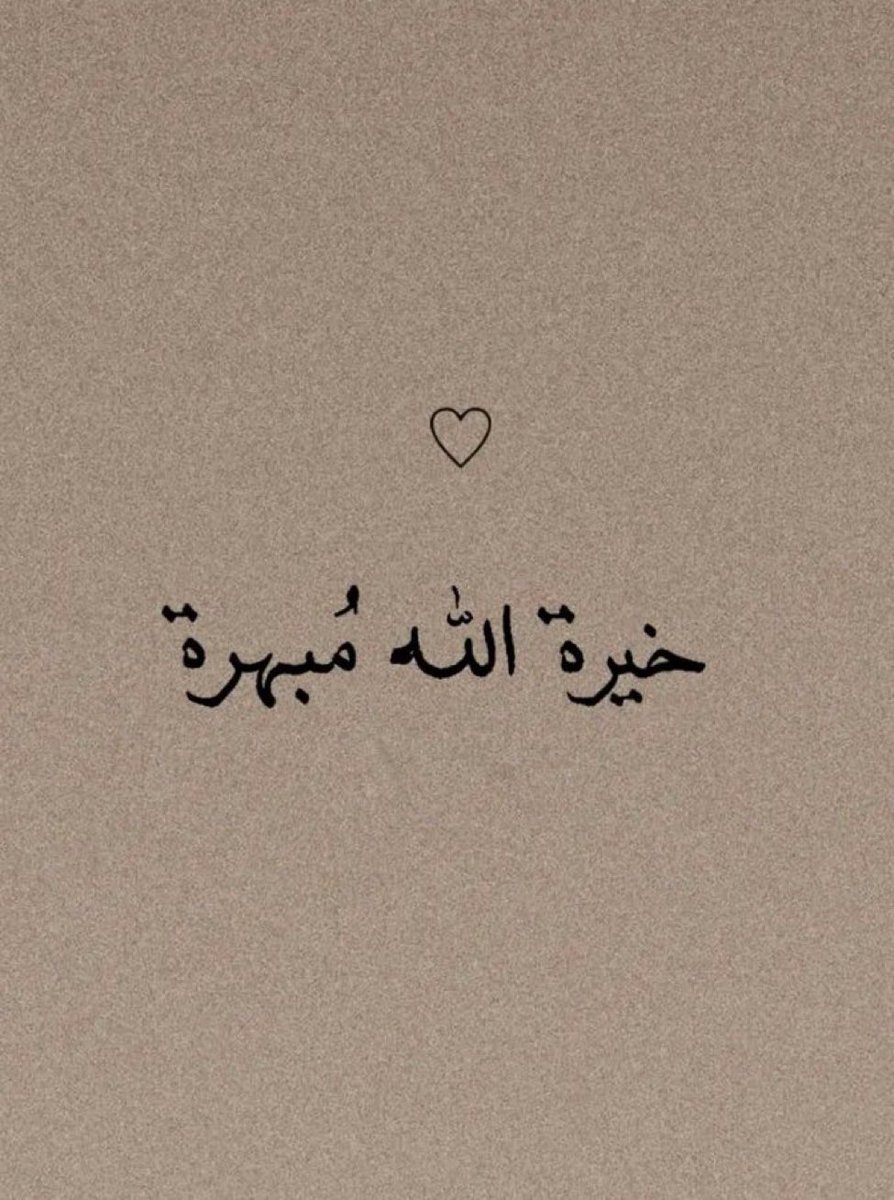 خيرة الله مُبهرة